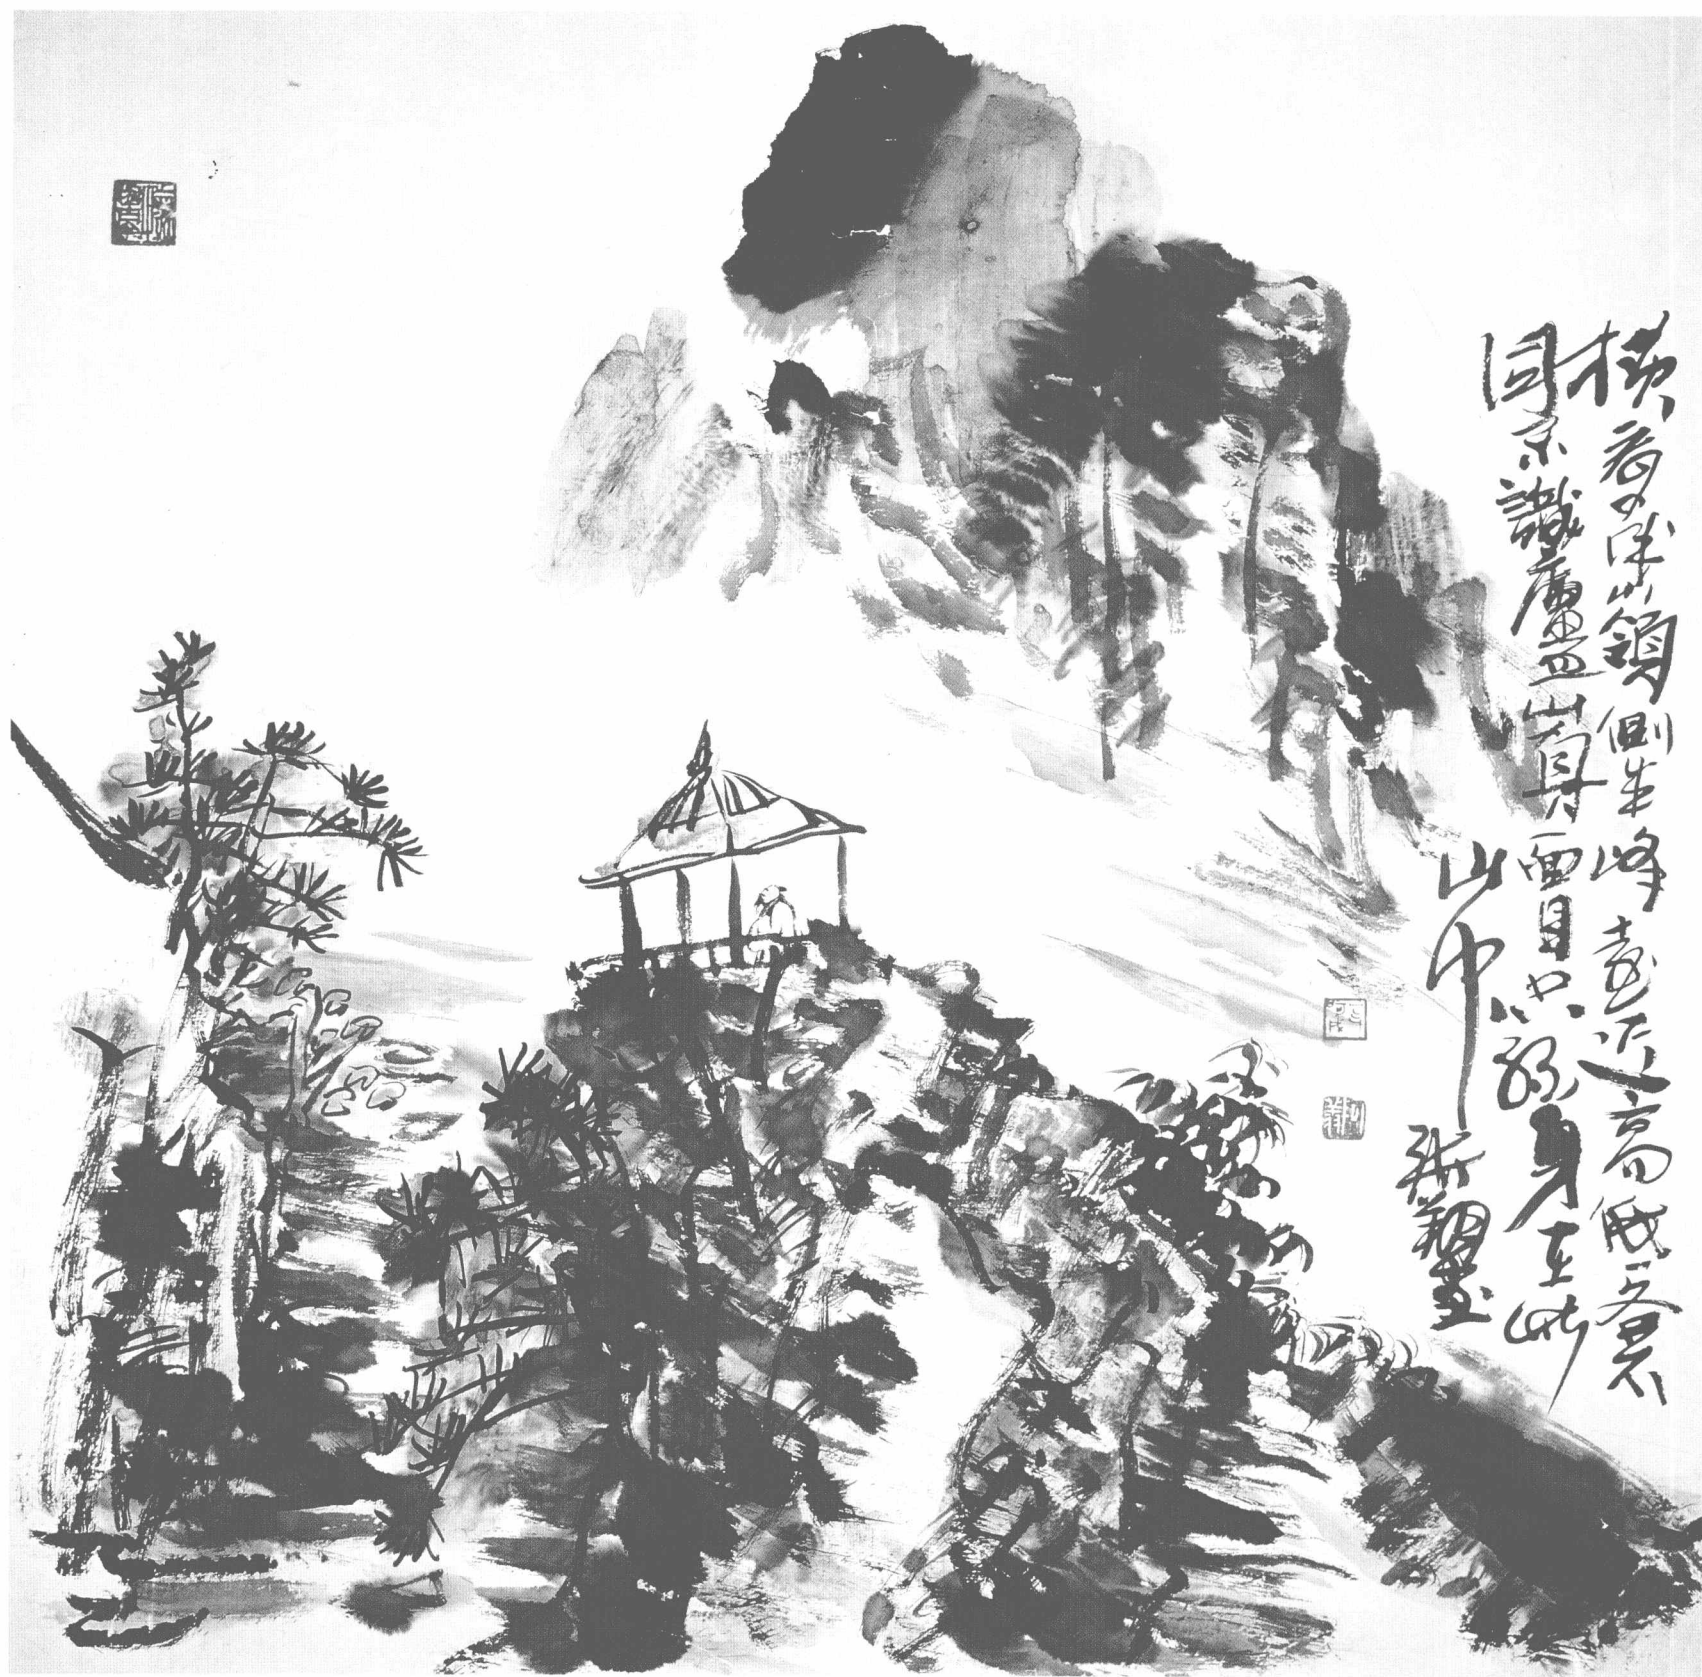 横看成嶺側成峰遠近高低各不
同不識廬山真面目只緣身在此
山中